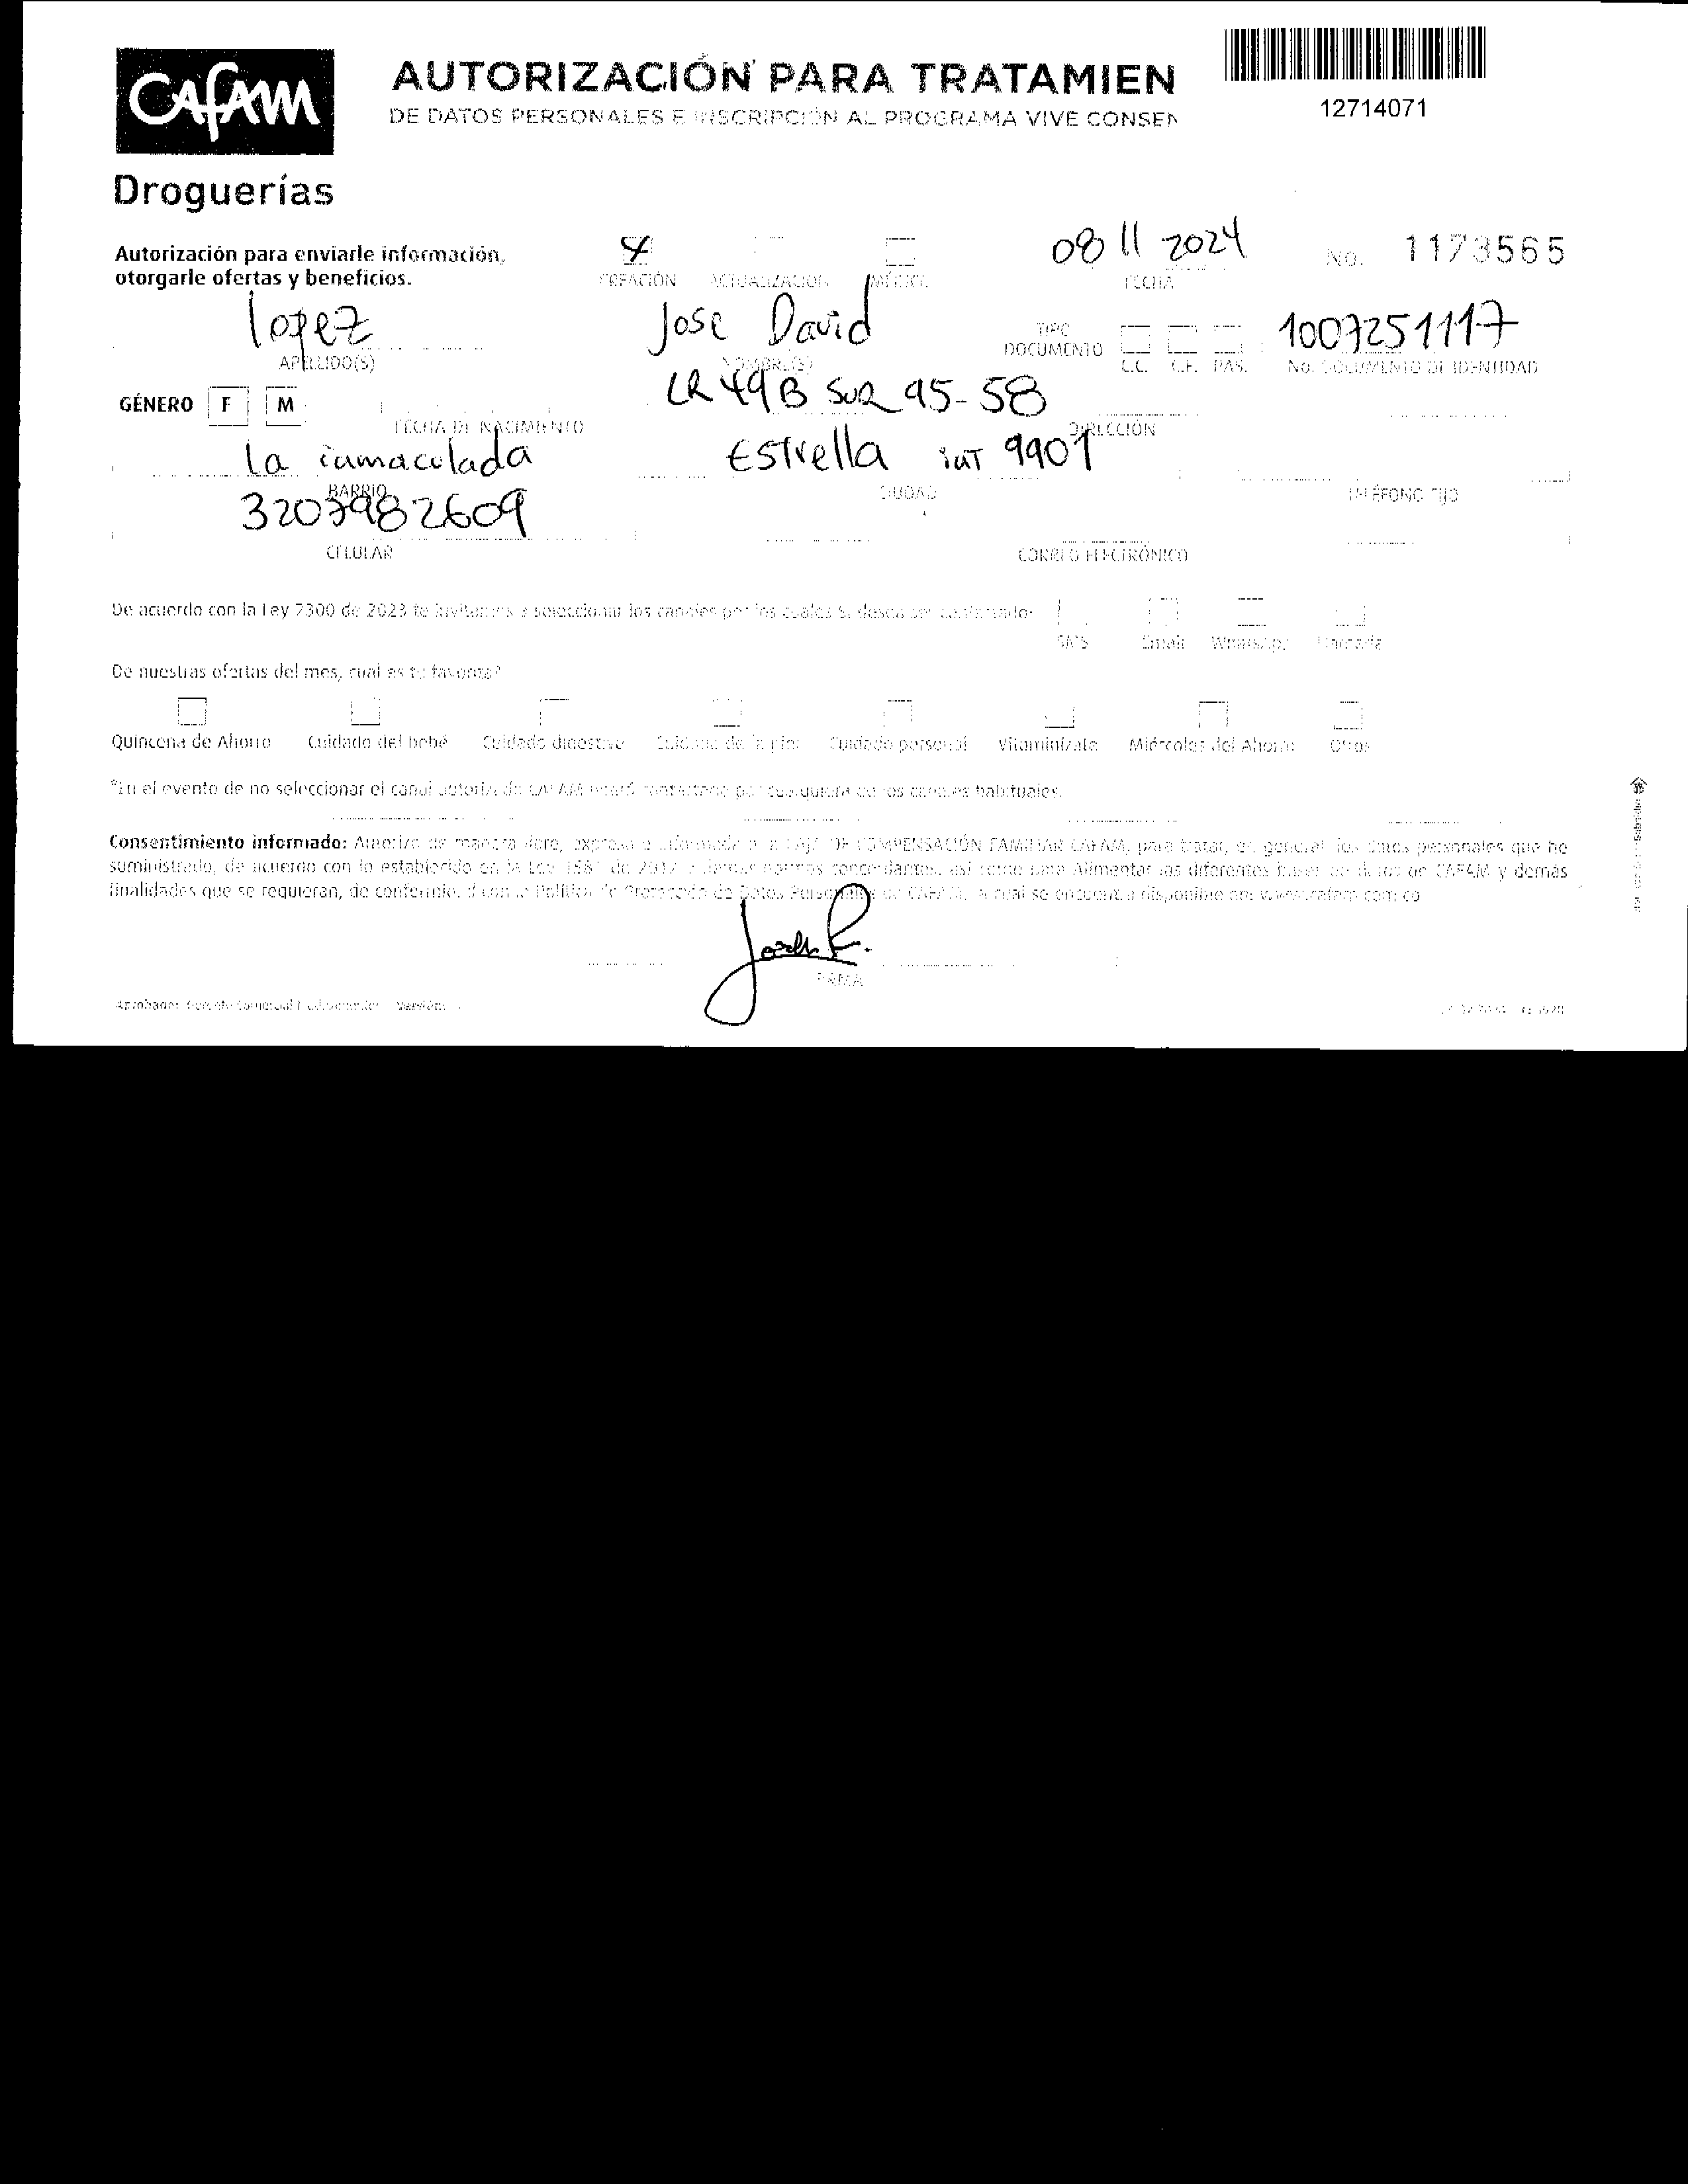 CAFAM
AUTORIZACIÓN PARA TRATAMIEN
DE DATOS PERSONALES E INSCRIPCIÓN AL PROGRAMA VIVE CONSEN
12714071
Droguerías
Autorización para enviarle información,
otorgarle ofertas y beneficios.
X
CREACIÓN ACTUALIZACIÓN
08 11 2024
FECHA
No. 1173565
lopez Jose David
APELLIDO(S) NOMBRE(S)
TIPO
DOCUMENTO
C.C. C.E. PAS.
1007251117
No. DOCUMENTO DE IDENTIDAD
GÉNERO F M
FECHA DE NACIMIENTO
CR 49B SUR 95-58
DIRECCIÓN
La iamacolada Estrella iaT 9901
BARRIO CIUDAD TELÉFONO FIJO
3207982609
CELULAR CORREO ELECTRÓNICO
De acuerdo con la Ley 2300 de 2023 te invitamos a seleccionar los canales por los cuales si desea ser contactado:
SMS Email WhatsApp Llamada
De nuestras ofertas del mes, cual es tu favorita?
Quincena de Ahorro Cuidado del bebé Cuidado digestivo Cuidado de la piel Cuidado personal Vitaminízate Miércoles del Ahorro Otros
*En el evento de no seleccionar el canal autorizado CAFAM podrá contactarlo por cualquiera de los canales habituales.
Consentimiento informado: Autorizo de manera libre, expresa e informada a la CAJA DE COMPENSACIÓN FAMILIAR CAFAM, para tratar, en general los datos personales que he
suministrado, de acuerdo con lo establecido en la Ley 1581 de 2012 y demás normas concordantes, así como para Alimentar las diferentes bases de datos de CAFAM y demás
finalidades que se requieran, de conformidad con la Política de Protección de Datos Personales de CAFAM, la cual se encuentra disponible en: www.cafam.com.co
FIRMA